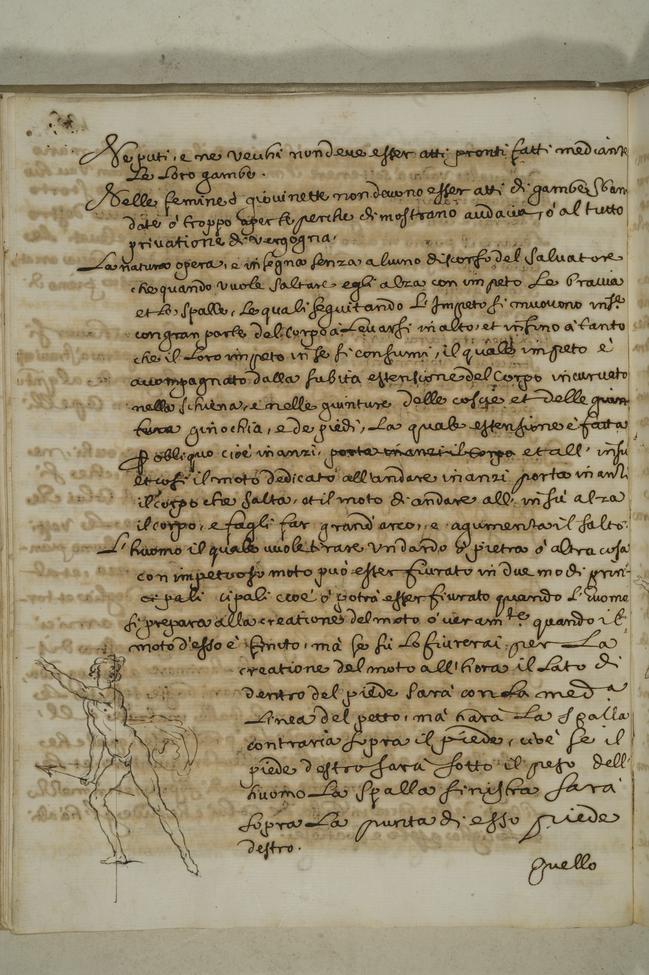 Ne puti, e ne vechi non deve esser atti pronti fatti mediante
Le Loro gambe.
Nelle femine ò giovinette non devono esser atti di gambe sban
date ò troppo aperte perche dimostrano audacia, ò al tutto
privatione di vergogna.
La natura opera, e insegna senza alcuno discorso del Salvatore
che quando vuole saltare egli alza con impeto Le braccia
et Le spalle, Le quali seguitando L'Impeto si muovono insᵉ.
con gran parte del corpo à Levarsi in alto, et insino à tanto
che il Loro impeto in se si consumi, il quale impeto è
accompagnato dalla subita estensione del Corpo incurvato
nella schiena, e nelle giunture delle coscie et delle giun
ture ginochia, e de piedi, La quale estensione è fatta
P obliquo cioè inanzi, porta inanzi il Corpo et all' insu
et cosi il moto dedicato all'andare inanzi porta inanzi
il Corpo che salta, et il moto di andare all' insù alza
il corpo, e fagli far grand'arco, e agumenta il salto.
L'huomo il quale vuole tirare un dardo ò pietra ò altra cosa
con impetuoso moto può esser fiurato in due modi prin
cipali cipali cioè ò potrà esser fiurato quando L'uomo
si prepara alla creatione del moto ò veramᵗᵉ quando il
moto d'esso è finito, mà se tù Lo fiurerai per La
creatione del moto all'hora il Lato di
dentro del piede sarà con La medᵃ
Linea del petto, mà harà La spalla
contraria sopra il piede, cioè se il
piede destro sarà sotto il peso dell'
huomo La spalla sinistra sarà
sopra La punta di esso piede
destro.
Quello